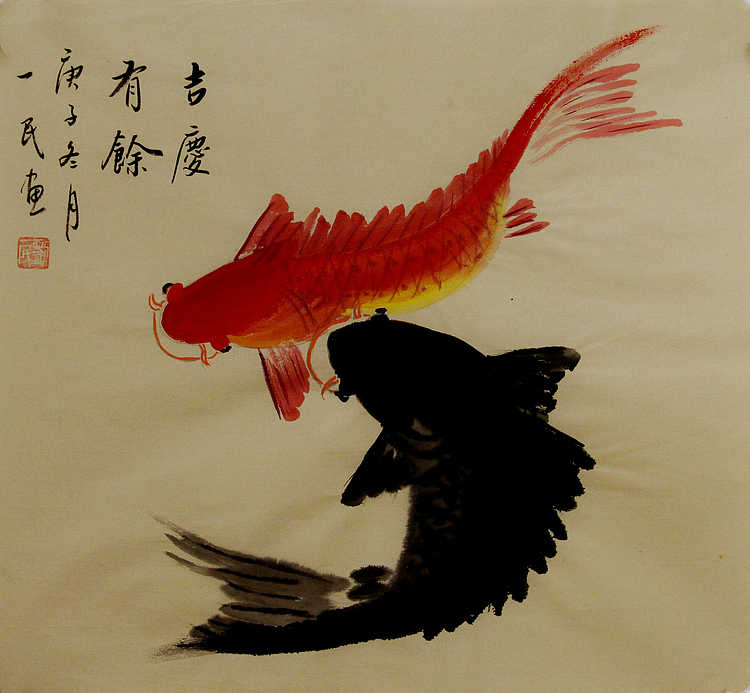 吉慶
有餘
庚子冬月
一民画